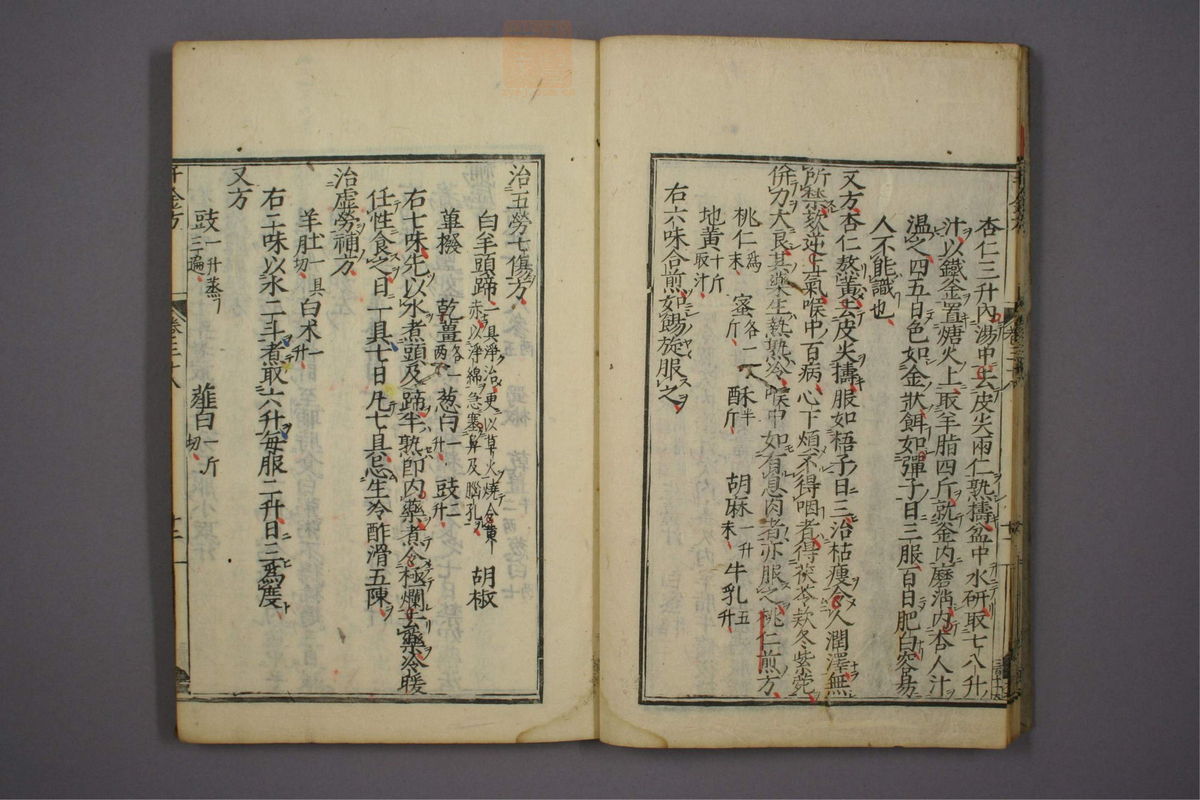 杏仁三升內湯中去皮尖兩仁熟擣盆中水研取七八升
汁以鐵釜置煻火上取羊脂四斤就釜內磨消內杏人汁
溫之四五日色如金狀餌如彈子日三服百日肥白容易
人不能識也
又方杏仁熬黃去皮尖擣服如梧子日三治枯瘦令人潤澤無
所禁欬逆上氣喉中百病心下煩不得咽者得茯苓款冬紫菀
併力大良其藥生熟熟冷喉中如有息肉者亦服之桃仁煎方
桃仁為末 蜜各二斤 酥半斤 胡麻一升末 牛乳五升
地黃十斤取汁
右六味合煎如餳旋服之
治五勞七傷方
白羊頭蹄一具淨治更以草火燒令黃赤以淨綿急塞鼻及腦孔 胡椒
蓽撥 乾薑各一兩 葱白一升 豉二升
右七味先以水煮頭及蹄半熟即內藥煮令極爛去藥冷暖
任性食之日一具七日凡七具忌生冷酢滑五陳
治虛勞補方
羊肚一具切 白朮一升
右二味以水二斗煮取六升每服二升日三為度
又方
豉一升蒸三遍 薤白一斤切
千金方
卷三十八